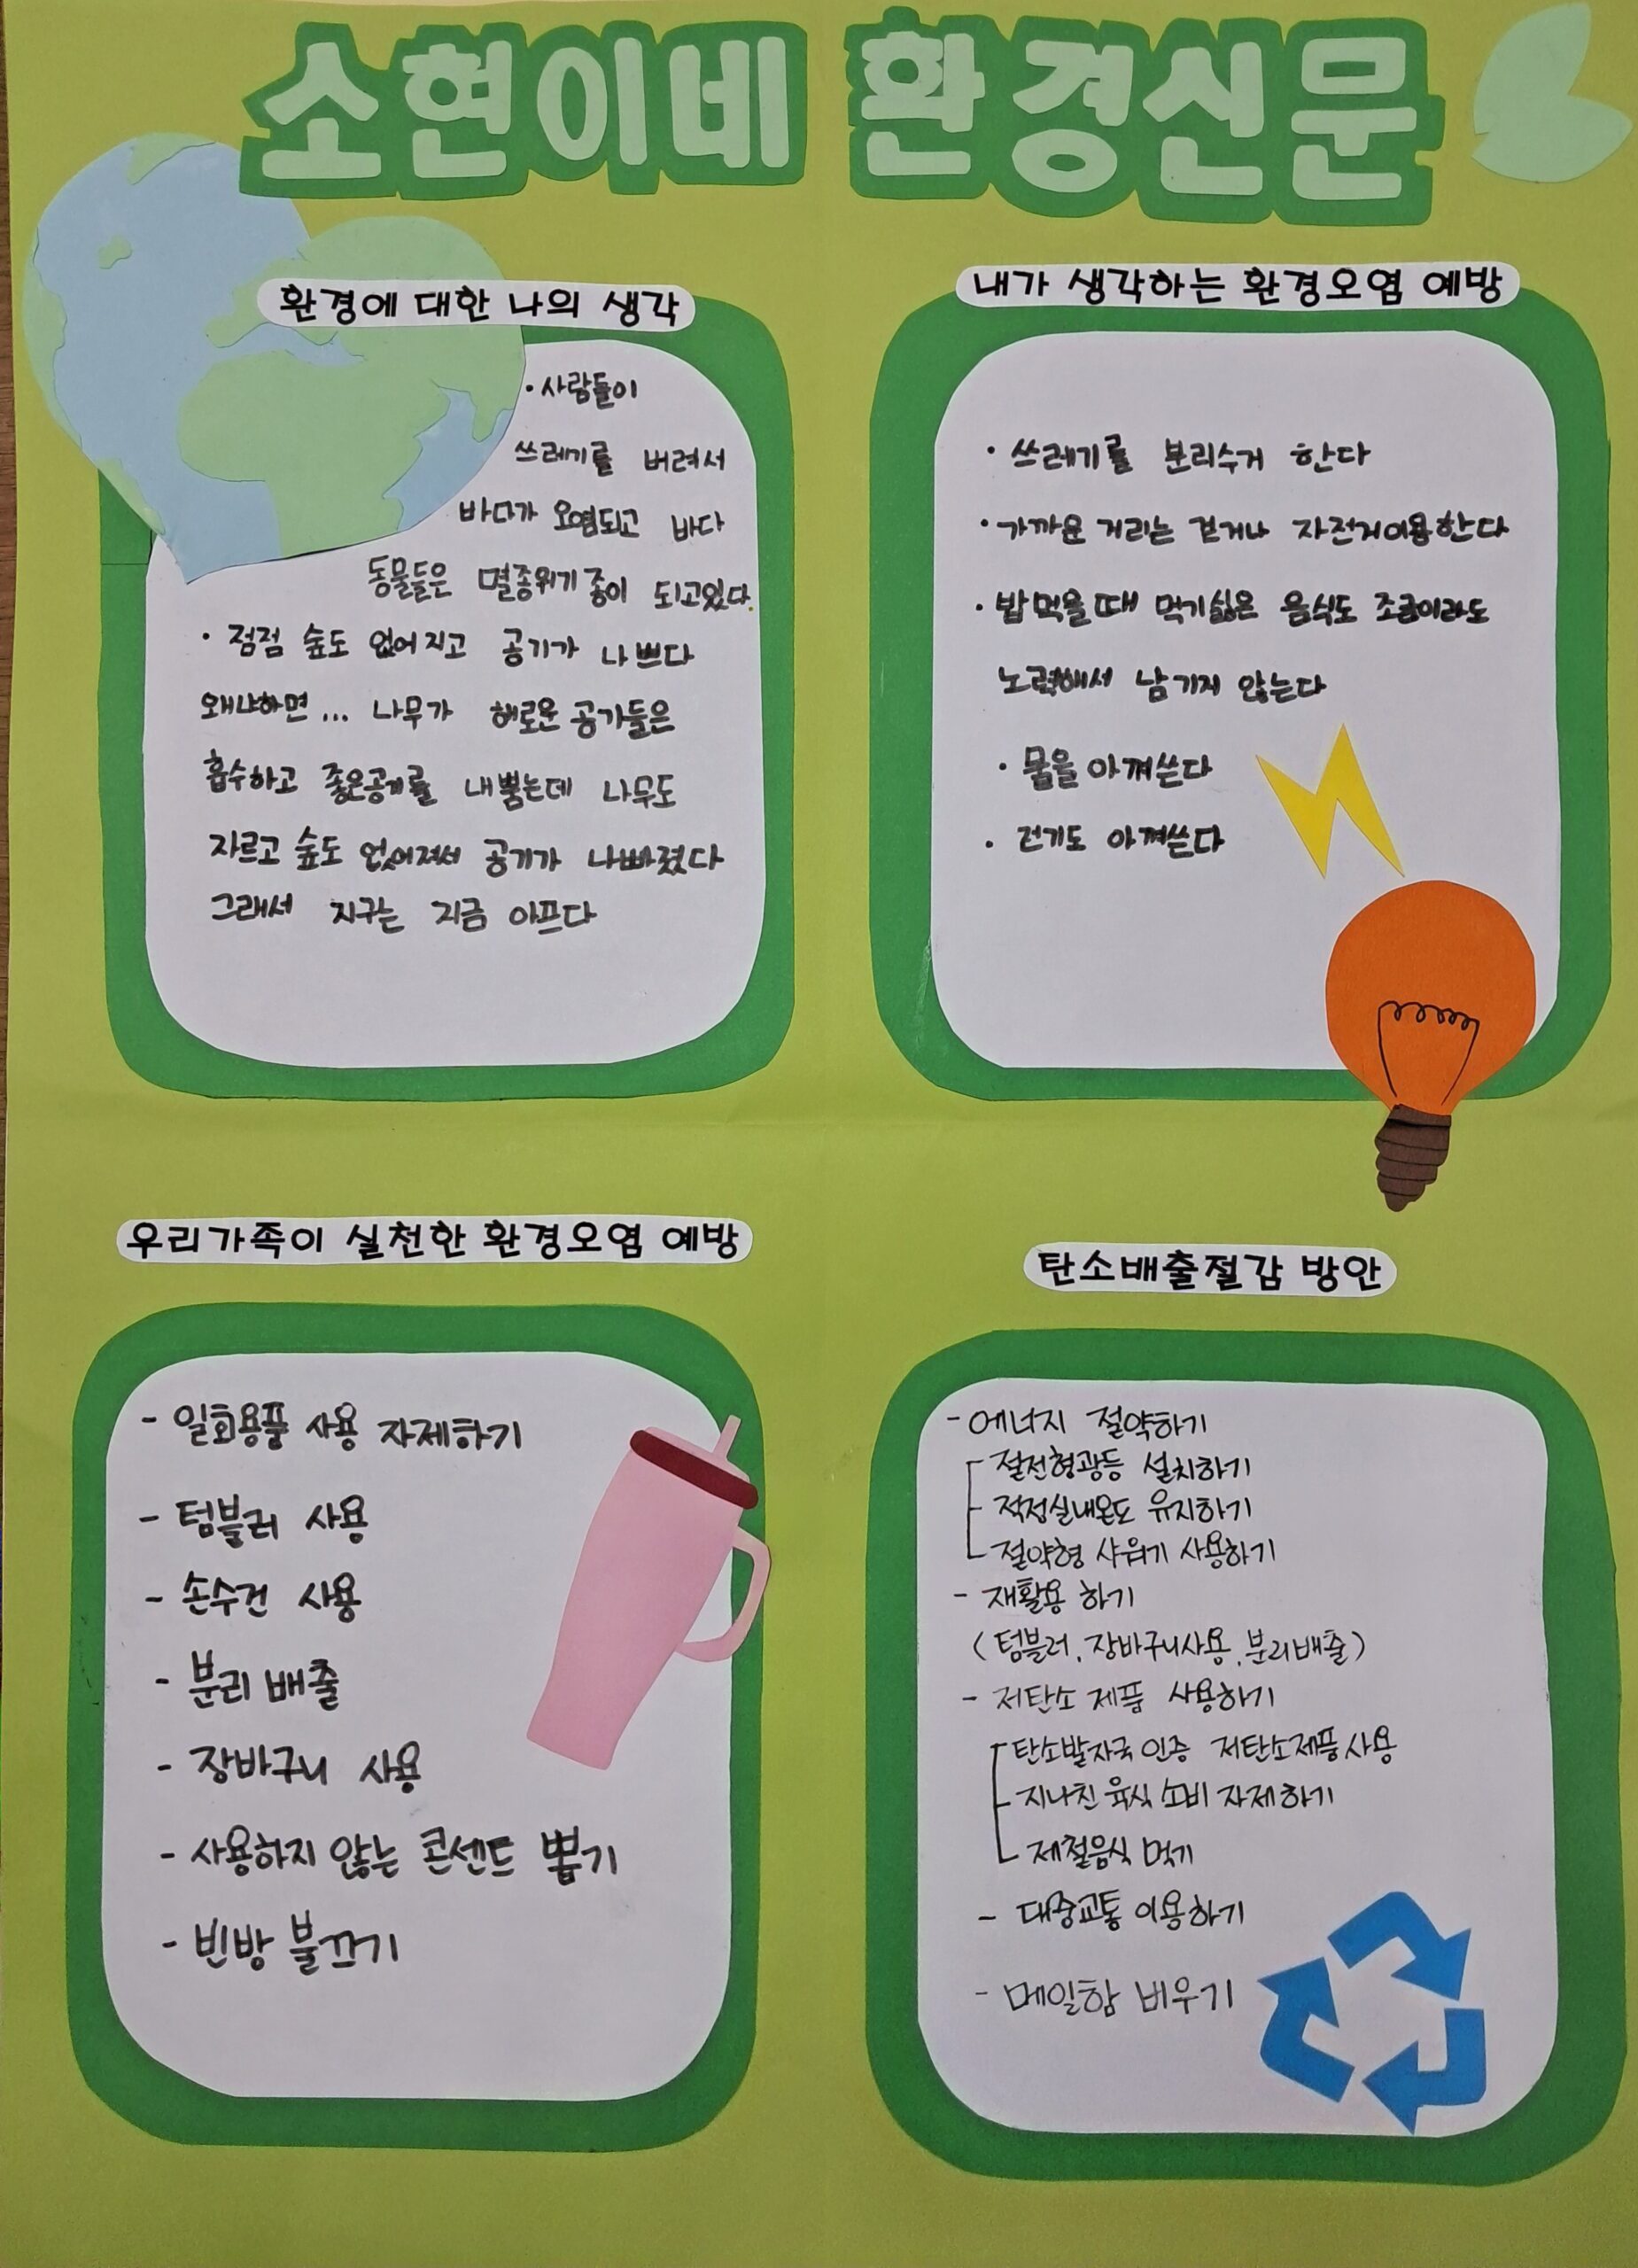 소현이네 환경신문
환경에 대한 나의 생각
· 사람들이
쓰레기를 버려서
바다가 오염되고 바다
동물들은 멸종위기 종이 되고있다.
· 점점 숲도 없어지고 공기가 나쁘다
왜냐하면... 나무가 해로운 공기들은
흡수하고 좋은공기를 내뿜는데 나무도
자르고 숲도 없어져서 공기가 나빠졌다
그래서 지구는 지금 아프다
내가 생각하는 환경오염 예방
· 쓰레기를 분리수거 한다
· 가까운 거리는 걷거나 자전거이용한다
· 밥먹을때 먹기싫은 음식도 조금이라도
노력해서 남기지 않는다
· 물을 아껴쓴다
· 전기도 아껴쓴다
우리가족이 실천한 환경오염 예방
- 일회용품 사용 자제하기
- 텀블러 사용
- 손수건 사용
- 분리 배출
- 장바구니 사용
- 사용하지 않는 콘센트 뽑기
- 빈방 불끄기
탄소배출절감 방안
- 에너지 절약하기
절전형광등 설치하기
적정실내온도 유지하기
절약형 샤워기 사용하기
- 재활용 하기
(텀블러, 장바구니사용, 분리배출)
- 저탄소 제품 사용하기
탄소발자국 인증 저탄소제품사용
지나친 육식 소비 자제하기
제철음식 먹기
- 대중교통 이용하기
- 메일함 비우기